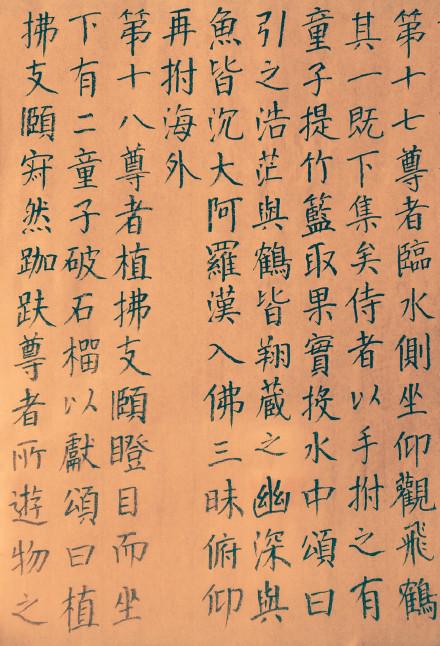 第十七尊者臨水側坐仰觀飛鶴
其一既下集矣侍者以手拊之有
童子提竹籃取果實投水中頌曰
引之浩茫與鶴皆翔藏之幽深與
魚皆沉大阿羅漢入佛三昧俯仰
再拊海外
第十八尊者植拂支頤瞪目而坐
下有二童子破石榴以獻頌曰植
拂支頤寂然跏趺尊者所遊物之